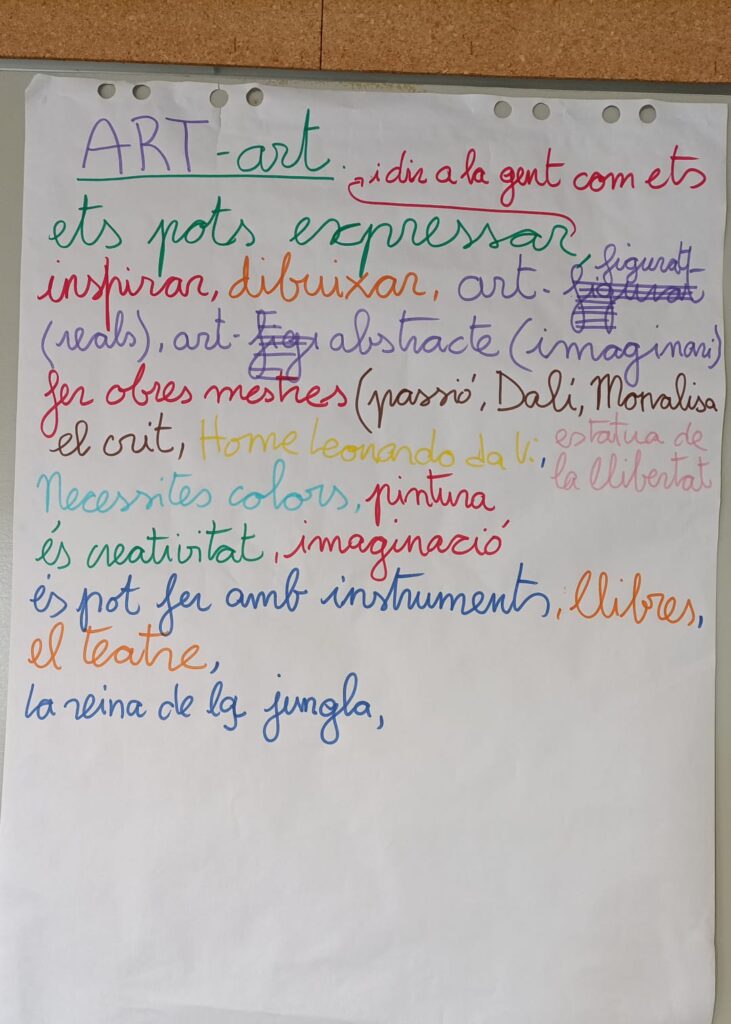 ART-art. i dir a la gent com ets
ets pots expressar,
inspirar, dibuixar, art- figurat
(reals), art- abstracte (imaginari)
fer obres mestres (passió, Dalí, Monalisa
el crit, Home Leonardo da Vi, estatua de
la llibertat
Necessites colors, pintura
és creativitat, imaginació
és pot fer amb instruments, llibres,
el teatre,
la reina de la jungla,